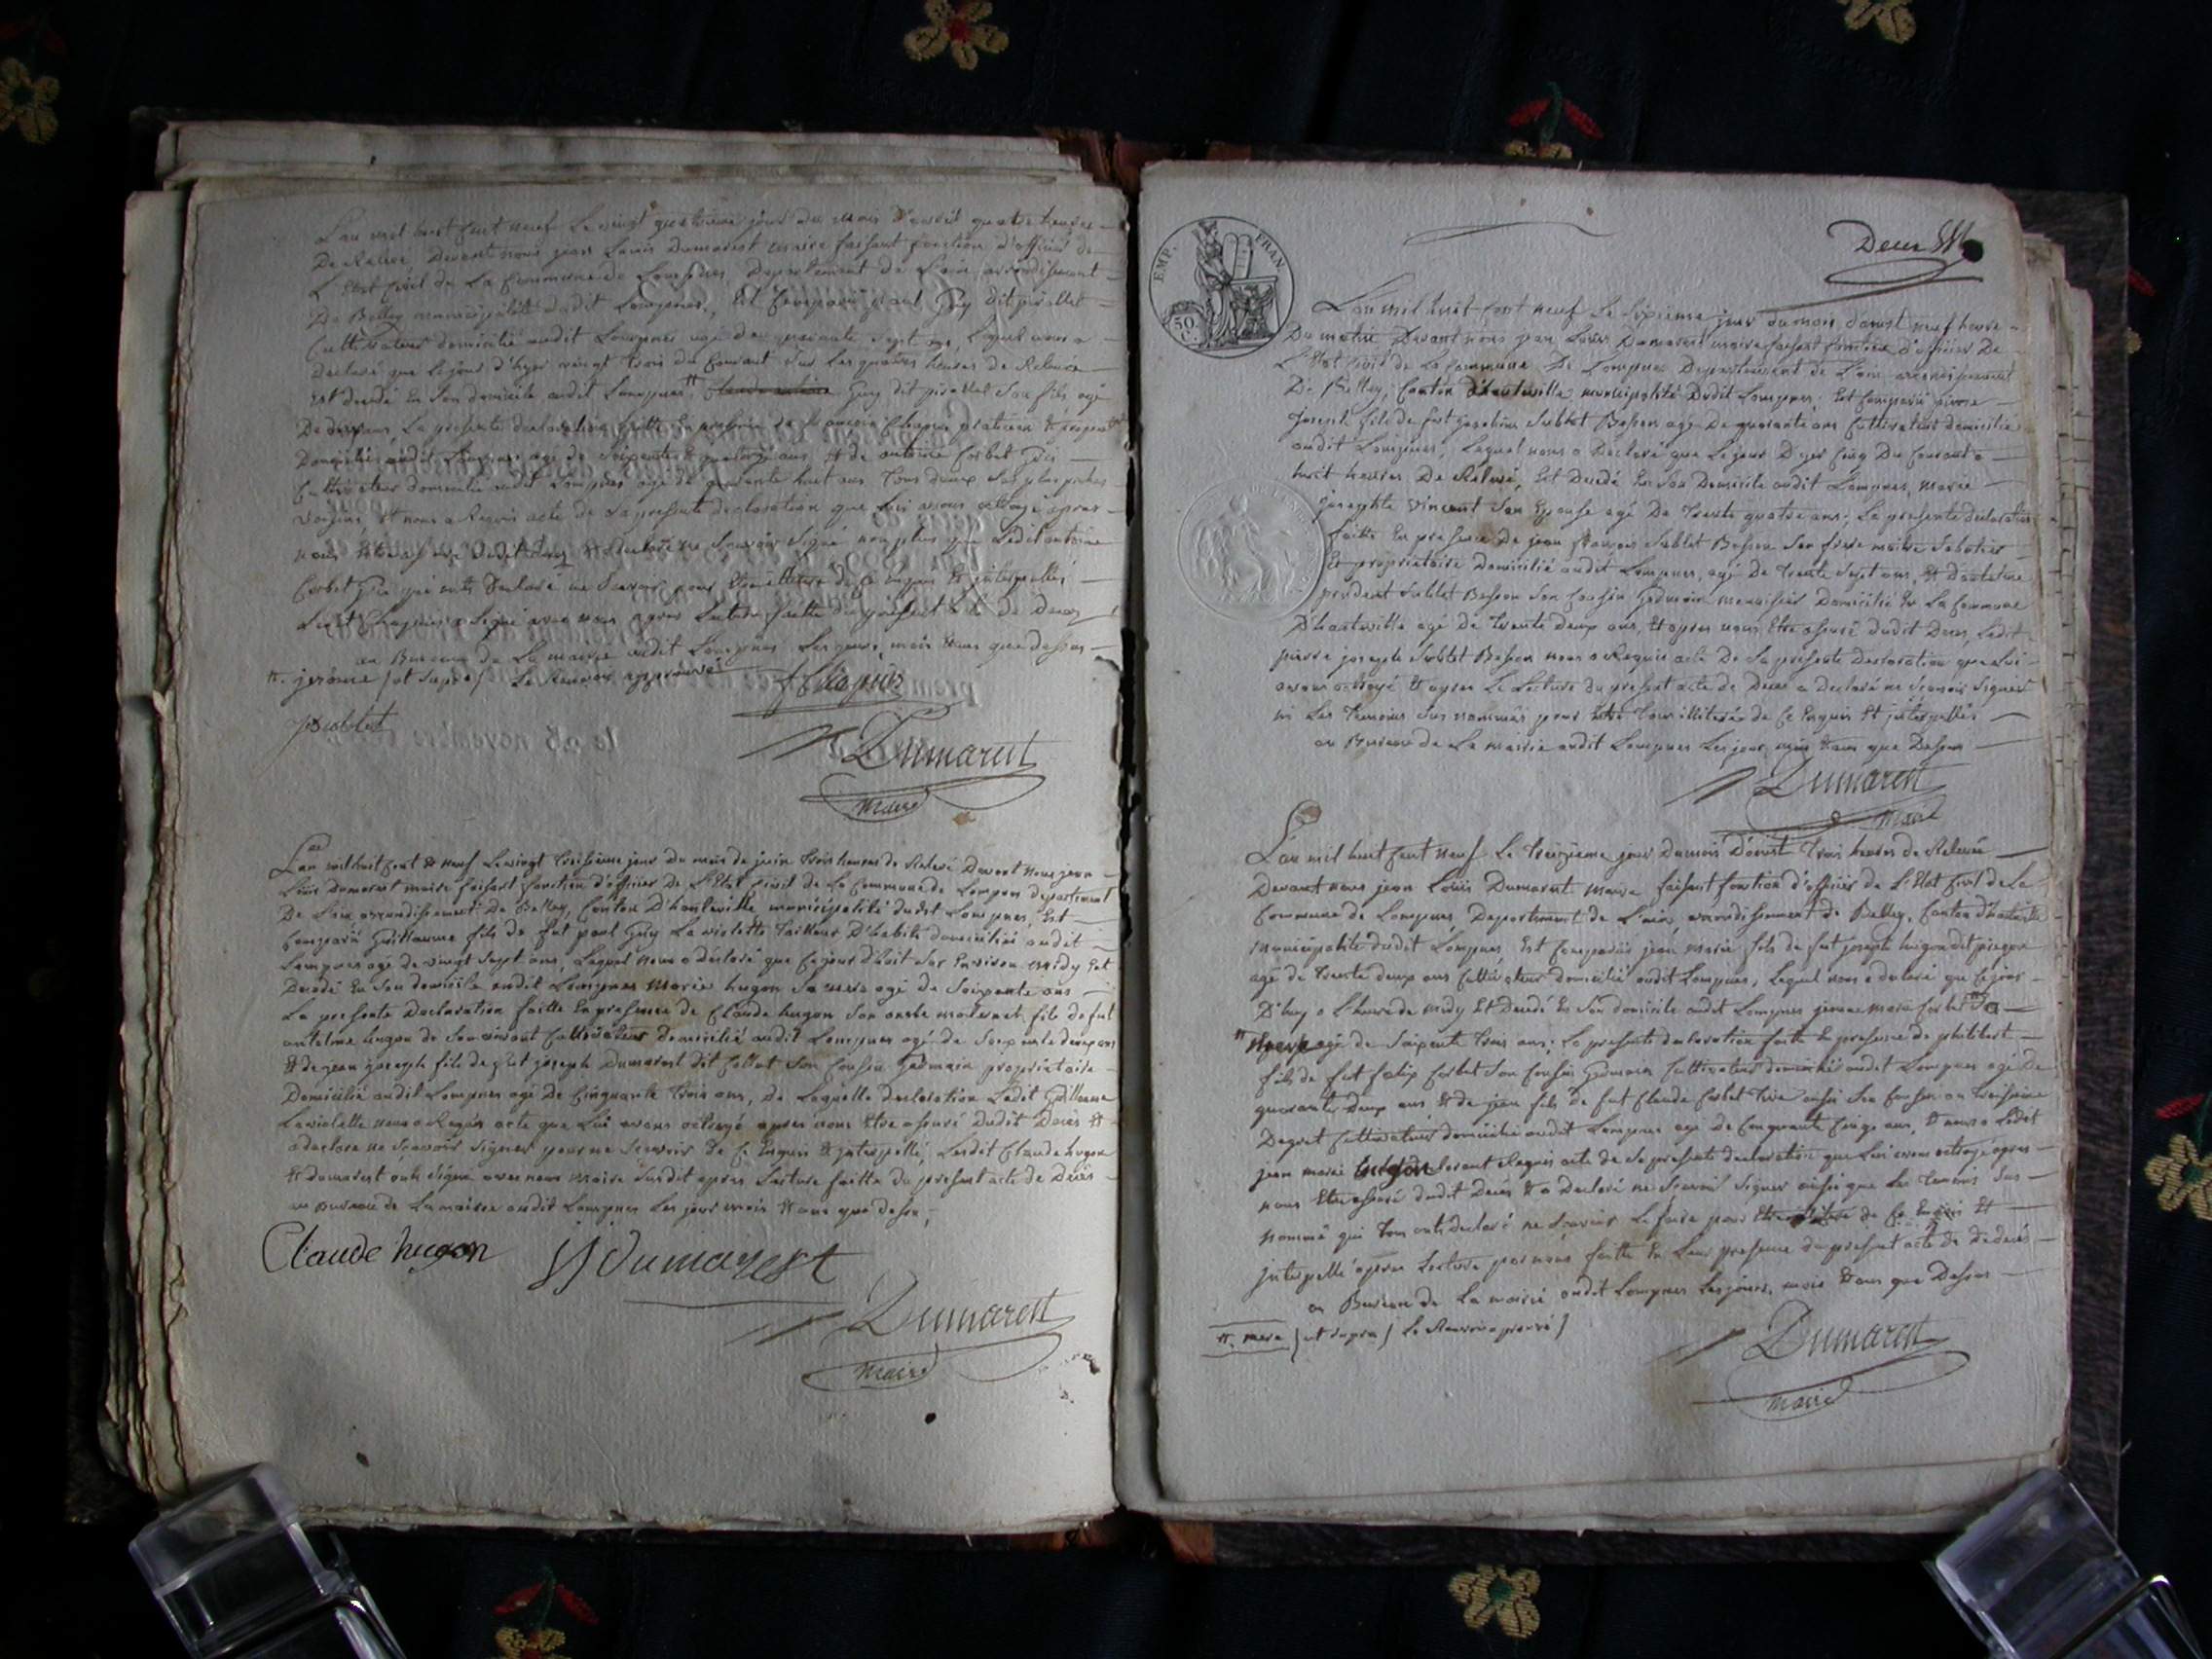 L'an mil huit cent neuf Le vingt quatrieme jour du mois d'avril quatre heures
De Relevé Devant nous jean Louis Dumarest maire faisant fonction d'officier de
L'Etat Civil de La Commune de Lompnes, Departement de L'ain arrondissement
De Belley municipalité dudit Lompnes, Est Comparu paul Guy dit pirallet
Cultivateur domicilié audit Lompnes agé de quarante sept ans, Lequel nous a
Declaré que Le jour d'hyer vingt trois du Courant sur Les quatres heures de Relevée
Est decédé En Son domicile audit Lompnes # Guy dit pirallet Son fils, agé
De ans, La presente declaration faitte En presence de Chapuis
Domicilié audit Lompnes agé de Soixante & quatorze ans, & de antoine Corbet
Cultivateur domicilié audit Lompnes agé de quarante huit ans Tous deux Ses plus proches
voisins, & nous a Requis acte de Sa presente declaration que Lui avons octroyé apres
nous Etre assuré dudit deces & a declaré ne Scavoir Signer non plus que Ledit antoine
Corbet qui ont declaré ne Scavoir pour Etre illiteré de Ce Enquis & jnterpellés
Ledit Chapuis a Signé avec nous apres Lecture faitte du présent acte de Deces
au Bureau de La mairie audit Lompnes Les jours, mois & ans que dessus
#. jerôme (ut supra) Le Renvoi approuvé
Chapuis
Dumarest
maire
L'an mil huit Cent & neuf Le vingt troisieme jour du mois de juin trois heures de Relevé Devant nous jean
Louis Dumarest maire faisant fonction d'officier De L'Etat Civil de La Commune de Lompnes departement
De L'ain arrondissement De Belley, Canton D'hauteville municipalité dudit Lompnes, Est
Comparu Guillaume fils de fut paul Guy La violette Tailleur D'habits domicilié audit
Lompnes agé de vingt Sept ans, Lequel nous a déclaré que Ce jour d'huit Sur Environ midy Est
Decedé En Son domicile audit Lompnes Marie hugon Sa mere agé de Soixante ans
La presente Declaration faitte En presence de Claude hugon Son oncle maternel, fils de fut
antelme hugon de Son vivant Cultivateur domicilié audit Lompnes agé de Soixante deux ans
& de jean joseph fils de fut joseph Dumarest dit Collet Son Cousin Germain proprietaire
Domicilié audit Lompnes agé De Cinquante Trois ans, De Laquelle declaration Ledit Guillaume
Laviolette nous a Requis acte que Lui avons octroyé apres nous Etre assuré Dudit Deces &
a declaré ne Scavoir Signer pour ne Scavoir de Ce Enquis & jnterpellé, Lesdit Claude hugon
& dumarest ont Signé avec nous maire Susdit apres Lecture faitte du present acte de Deces
au Bureau de La mairie audit Lompnes Les jour mois & ans que dessu,
Claude hugon JJ dumarest
Dumarest
maire
EMP. FRAN.
50 C.
Deux
L'an mil huit Cent neuf Le Sixieme jour du mois d'aoust neuf heure
Du matin Devant nous jean Louis Dumarest maire faisant fonction d'officier De
L'Etat Civil de La Commune De Lompnes Departement de L'ain arrondissement
De Belley, Canton d'hauteville municipalité Dudit Lompnes, Est Comparu pierre
joseph fils de fut Sublet Besson agé De quarante ans Cultivateur domicilié
audit Lompnes, Lequel nous a Declaré que Le jour D'yer Cinq Du Courant a
huit heures De Relevé, Est Decédé En Son Domicile audit Lompnes, Marie
josephte Vincent Son Epouse agé De Trente quatre ans; La presente declaration
faitte En presence de jean francois Sublet Besson Son frere maitre Sabotier
& proprietaire Domicilié audit Lompnes, agé De Trente Sept ans, & D'antelme
prudent Sublet Besson Son Cousin Germain menuisier Domicilié En La Commune
D'hauteville agé De Trente Deux ans, & apres nous Etre assuré dudit Deces, Ledit
pierre joseph Sublet Besson nous a Requis acte De Sa présente Declaration que Lui
avons octroyé & apres La Lecture du present acte de Deces a declaré ne Scavoir Signer
ni Les Temoins Sus nommés pour Etre Tous illiterés de Ce Enquis & jnterpellés
au Bureau de La mairie audit Lompnes Les jour, mois & ans que Dessus
Dumarest
maire
L'an mil huit Cent neuf Le Treizieme jour du mois d'aoust Trois heures de Relevée
Devant nous jean Louis Dumarest Maire faisant fonction d'officier de L'Etat Civil de La
Commune de Lompnes, Departement de L'ain, arrondissement de Belley, Canton d'hauteville
municipalité dudit Lompnes, Est Comparus jean marie fils de fut joseph hugon dit
agé de Trente deux ans Cultivateur domicilié audit Lompnes, Lequel nous a declaré que Ce jour
D'huy a L'heure de midy Est Decedé En Son domicile audit Lompnes marie Corbet Sa
# agé de Soixante Trois ans; La presente declaration faitte En presence de philibert
fils de fut felix Corbet Son Cousin Germain Cultivateur domicilié audit Lompnes agé De
quarante Deux ans & de jean fils de fut Claude Corbet aussi Son Cousin au Troisieme
Degret Cultivateur domicilié audit Lompnes agé De Cinquante Cinq ans, & nous a Ledit
jean marie hugon Requis acte de Sa presente declaration que Lui avons octroyé apres
nous Etre assuré dudit Deces & a Declaré ne Scavoir Signer ainsi que Les Temoins Sus
nommé qui Tous ont declaré ne Scavoir Le faire pour Etre de Ce Enquis &
jnterpellé apres Lecture par nous faitte En Leur presence du present acte de dedeces
au Bureau de La mairie audit Lompnes Les jours, mois & ans que Dessus
#. mere (ut supra) Le Renvoi aprouvé)
Dumarest
maire